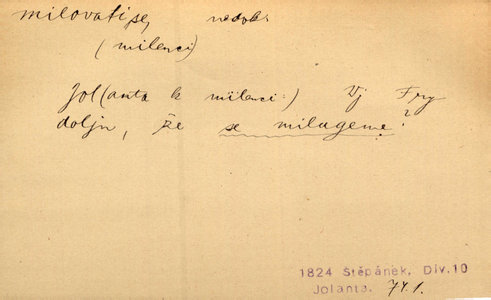 milovati se, nedok.
(milenci)
Jol(anta k milenci:) Vj Fry
dolju, že se milugeme?
1824 Štěpánek, Div.10
Jolanta. 74.1.